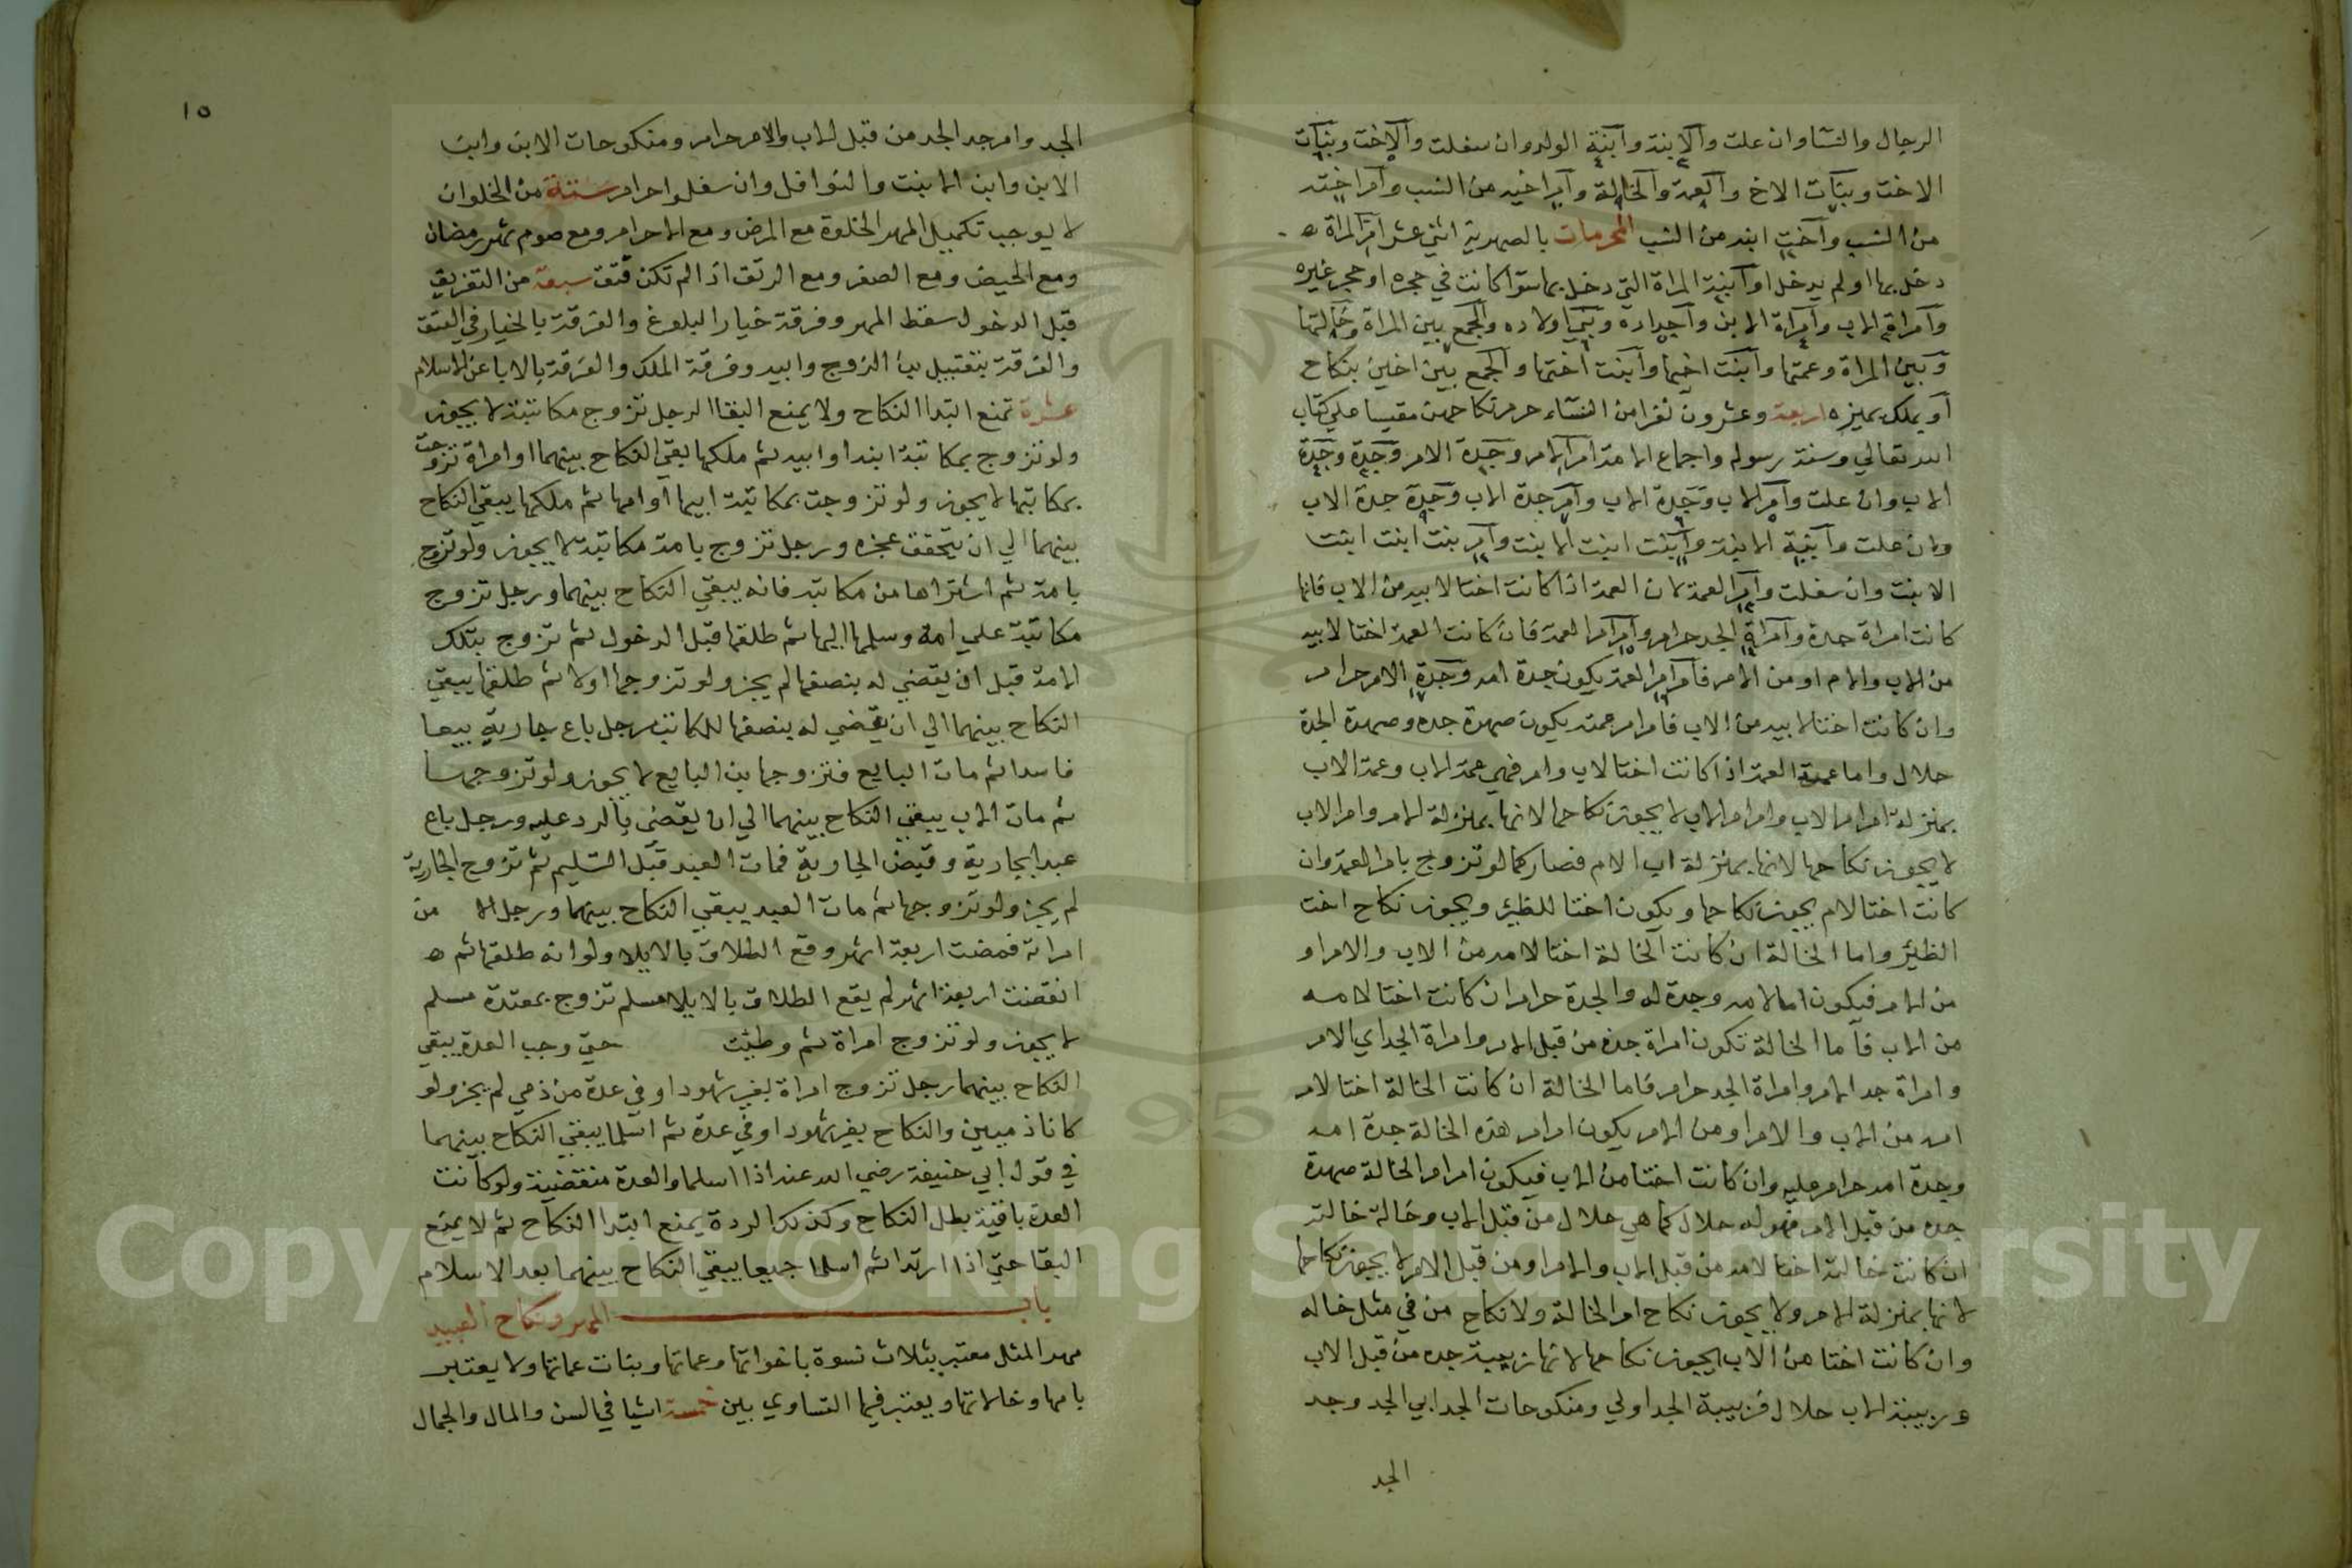 الرجال والنسا وان علت والابنة وابنة الولد وان سفلت والاخت وبنات
الاخت وبنات الاخ والعمة والخالة وام اخيه من النسب وام اخته
من النسب واخت ابنه من النسب المحرمات بالصهرية اثني عشر ام المراة ه
دخل بها او لم يدخل او ابنة المراة التي دخل بها سوا كانت في حجره او حجر غيره
وامراة الاب وامراة الابن واجداده وبني اولاده والجمع بين المراة وخالتها
وبين المراة وعمتها وابنت اخيها وابنت اختها والجمع بين اختين بنكاح
او بملك يمين اربعة وعشرون نفرا من النساء حرم نكاحهن مقيسا علي كتاب
الله تعالي وسنة رسوله واجماع الامة ام ام الام وجدة الام وجدة وجدة
الاب وان علت وام الاب وجدة الاب وام جدة الاب وجدة جدة الاب
وان علت وابنة الابنة وابنت ابنت الابنت وام بنت ابنت ابنت
الابنت وان سفلت وام العمة لان العمة اذا كانت اختا لابيه من الاب فانها
كانت امراة جدة وامراة الجد حرام وام ام العمة فان كانت العمة اختا لابيه
من الاب والام او من الام فام ام العمة يكون جدة امه وجدة الام حرام
وان كانت اختا لابيه من الاب فام ام عمته يكون صهرة جده وصهرة الجدة
حلال واما عمة العمة اذا كانت اختا لاب وام فهي عمة الاب وعمة الاب
بمنزلة ام ام الاب وام ام الاب لا يجوز نكاحها لانها بمنزلة الام وام الاب
لا يجوز نكاحها لانها بمنزلة اب الام فصار كما لو تزوج بام العمة وان
كانت اختا لام يجوز نكاحها ويكون اختا للظير ويجوز نكاح اخت
الظئر واما الخالة ان كانت الخالة اختا لامه من الاب والام او
من الام فيكون اما لامه وجدة له والجدة حرام ان كانت اختا لامه
من الاب فاما الخالة تكون امراة جده من قبل الام وامراة الجد اي الام
وامراة جد الام وامراة الجد حرام فاما الخالة ان كانت الخالة اختا لام
امه من الاب والام او من الام يكون ام ام هذه الخالة جدة امه
وجدة امه حرام عليه وان كانت اختا من الاب فيكون ام ام الخالة صهرة
جده من قبل الام فهو له حلال كما هي حلال من قبل الاب وخالة خالته
ان كانت خالته اختا لامه من قبل الاب والام او من قبل الام لا يجوز نكاحها
لانها بمنزلة الام ولا يجوز نكاح ام الخالة ولا نكاح من في مثل خاله
وان كانت اختا من الاب يجوز نكاحها لانها ربيبة جده من قبل الاب
وربيبة الاب حلال فربيبة الجد اولي ومنكوحات الجد ابي الجد وجد
الجد
١٥
الجد وام جد الجد من قبل الاب والام حرام ومنكوحات الابن وابن
الابن وابن الابنت والنوافل وان سفلوا حرام ستة من الخلوات
لا يوجب تكميل المهر الخلوة مع المرض ومع الاحرام ومع صوم شهر رمضان
ومع الحيض ومع الصغر ومع الرتق اذا لم تكن فتق سبعة من التفريق
قبل الدخول سقط المهر وفرقة خيار البلوغ والفرقة بالخيار في العتق
والفرقة بتقبيل ابن الزوج وابيه وفرقة الملك والفرقة بالابا عن الاسلام
عشرة تمنع ابتدا النكاح ولا يمنع البقا الرجل تزوج مكاتبة لا يجوز
ولو تزوج بمكاتبة ابنه او ابيه ثم ملكها بقي النكاح بينهما او امراة تزوجت
بمكاتبها لا يجوز ولو تزوجت بمكاتبة ابيها او امها ثم ملكها يبقي النكاح
بينهما الي ان يتحقق عجزه ورجل تزوج بامة مكاتبة لا يجوز ولو تزوج
بامة ثم اشتراها من مكاتبه فانه يبقي النكاح بينهما ورجل تزوج
مكاتبة علي امة وسلمها اليها ثم طلقها قبل الدخول ثم تزوج بتلك
الامة قبل ان يقضي له بنصفها لم يجز ولو تزوجها اولا ثم طلقها يبقي
النكاح بينهما الي ان يقضي له بنصفها للمكاتب رجل باع جارية بيعا
فاسدا ثم مات البايع فتزوجها بن البايع لا يجوز ولو تزوجها
ثم مات الاب يبقي النكاح بينهما الي ان يقضي بالرد عليه ورجل باع
عبدا بجارية وقبض الجارية فمات العبد قبل التسليم ثم تزوج الجارية
لم يجز ولو تزوجها ثم مات العبد يبقي النكاح بينهما ورجل الا من
امراته فمضت اربعة اشهر وقع الطلاق بالايلا ولو انه طلقها ثم ه
انقضت اربعة اشهر لم يقع الطلاق بالايلا مسلم تزوج بمعتدة مسلم
لا يجوز ولو تزوج امراة ثم وطئت حتي وجب العدة يبقي
النكاح بينهما رجل تزوج امراة بغير شهود او في عدة من ذمي لم يجز ولو
كانا ذميين والنكاح بغير شهود او في عدة ثم اسلما يبقي النكاح بينهما
في قول ابي حنيفة رضي الله عنه اذا اسلما والعدة منقضية ولو كانت
العدة باقية بطل النكاح وكذلك الردة يمنع ابتدا النكاح ثم لا يمنع
البقا حتي اذا ارتدا ثم اسلما جميعا يبقي النكاح بينهما بعد الاسلام
باب المهر ونكاح العبيد
مهر المثل معتبر بثلاث نسوة باخواتها وعماتها وبنات عماتها ولا يعتبر
بامها وخالاتها ويعتبر فيها التساوي بين خمسة اشيا في السن والمال والجمال
Copyright © King Saud University